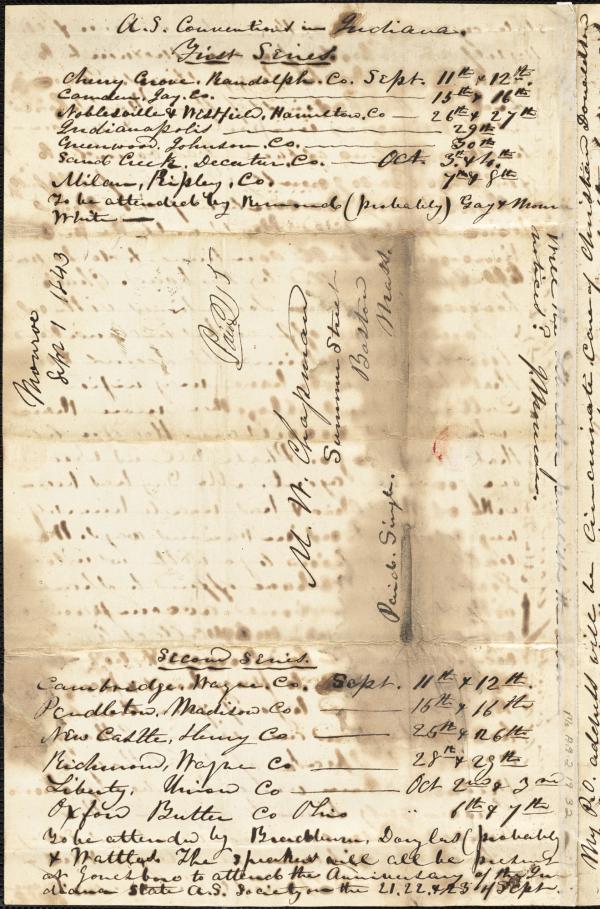 A.S. Conventions in Indiana.
First Series.
Cherry Grove, Randolph. Co. Sept. 11th & 12th.
Camden, Jay, Co. 15th & 16th
Noblesville & Westfield, Hamilton, Co 26th & 27th
Indianapolis 29th
Greenwood, Johnson, Co. 30th
Sand Creek, Decatur, Co. Oct. 3d. & 4.
Milan, Ripley, Co. 7th & 8th
To be attended by Remond (probably) Gay &
White
Monroe
Sept 1 1843
Paid
M. W. Chapman
Summer Street
Boston
Mass.
Paid. Single.
Second Series.
Cambridge, Wayne, Co. Sept. 11th & 12th
Pendleton, Madison Co 15th & 16th
New Castle, Henry Co 25th & 26th
Richmond, Wayne Co 28th & 29th
Liberty, Union Co Oct 2nd & 3rd
Oxford Butler Co Ohio " 6th & 7th
To be attended by Bradburn, Douglas (probably
& Wattles. The speakers will all be present
at Jonesboro to attend the Anniversary of the In
diana State A.S. Society on the 21. 22. & 23 of Sept.
My P.O. address will be Cincinnati Care of Christian Donaldson